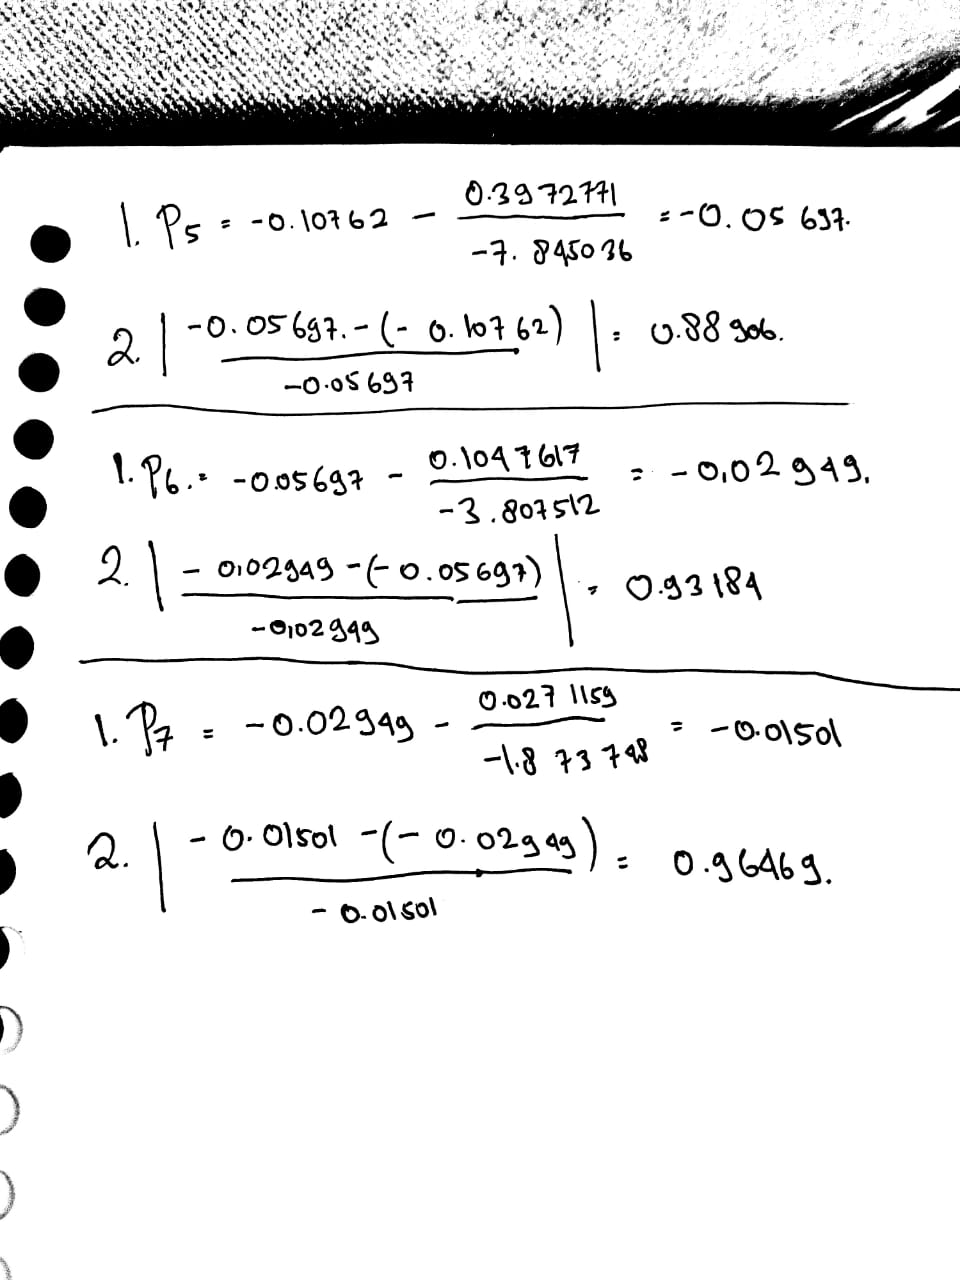 1. P5 = -0.10762 - 0.3972771 / -7.845036 = -0.05697.
2. | -0.05697. - (-0.10762) / -0.05697 | = 0.88906.
1. P6. = -0.05697 - 0.1047617 / -3.807512 = -0,02949.
2. | -0,02949 - (-0.05697) / -0,02949 | = 0.93184
1. P7 = -0.02949 - 0.0271159 / -1.873748 = -0.01501
2. | -0.01501 - (-0.02949) / -0.01501 = 0.96469.